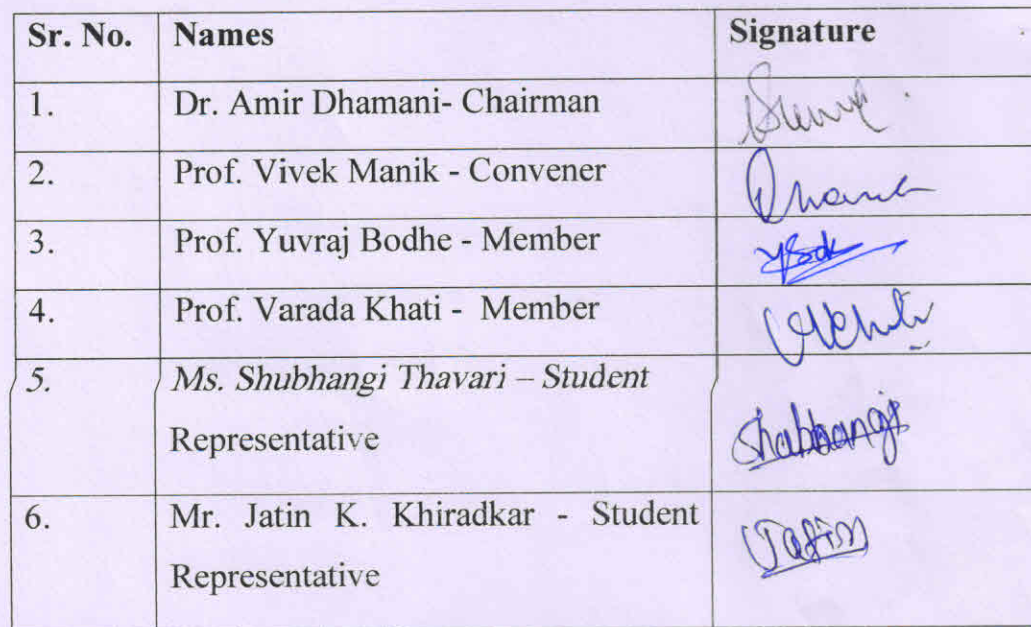 Sr. No. Names Signature
1. Dr. Amir Dhamani- Chairman
2. Prof. Vivek Manik - Convener
3. Prof. Yuvraj Bodhe - Member
4. Prof. Varada Khati - Member
5. Ms. Shubhangi Thavari – Student
Representative Shubhangi
6. Mr. Jatin K. Khiradkar - Student
Representative Jatin